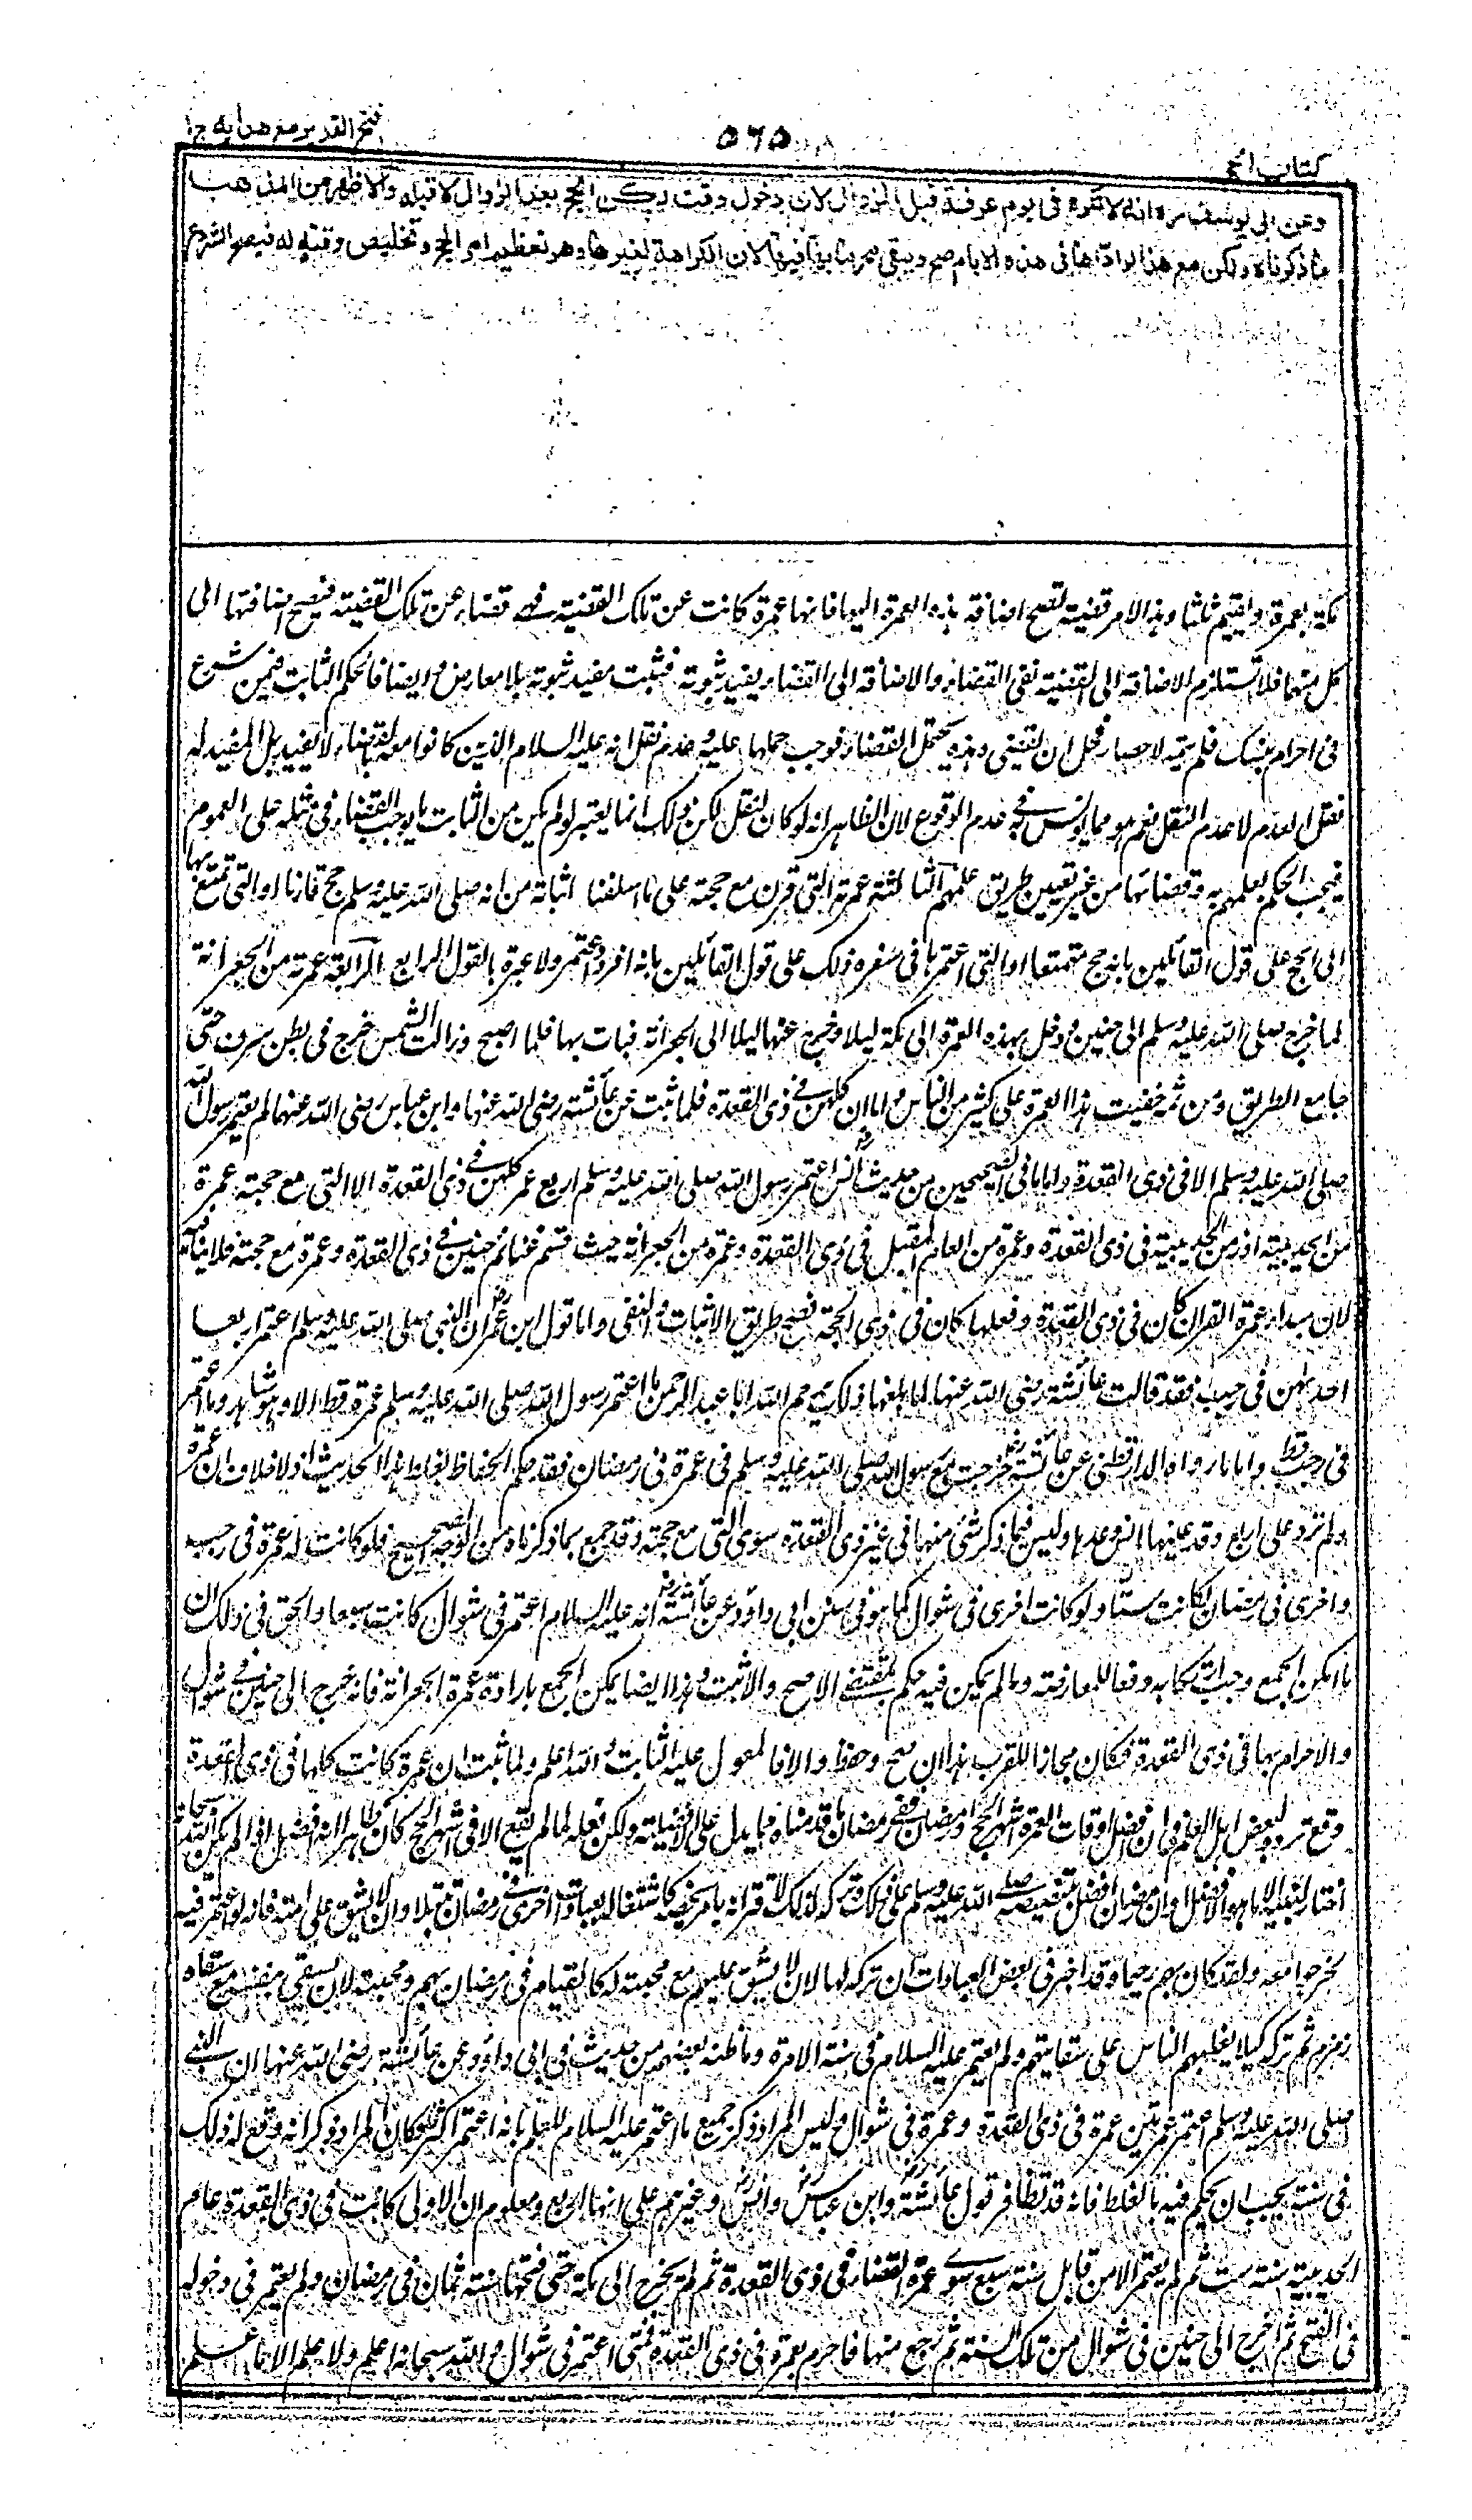 كتاب الحج
٥٦٥
فتح القدير مع هدايه ج ١
وعن ابي يوسف رح انه لا تكره في يوم عرفة قبل الزوال لان دخول وقت ركن الحج بعد الزوال لا قبله والاظهر من المذهب
ما ذكرناه ولكن مع هذا لو اداها في هذه الايام صح ويبقى محرما بها فيها لان الكراهة لغيرها وهو تعظيم امر الحج وتخليص وقته له فيصح الشروع
مكة بعمرة ويقيم ثلثا وهذا الامر قضية تصح اضافة هذه العمرة اليها فانها عمرة كانت عن تلك القضية فهي قضاء عن تلك القضية فيصح اضافتها الى
كل منهما فلا تستلزم الاضافة الى القضية نفي القضاء والاضافة الى القضاء يفيد ثبوته فثبت مفيد ثبوته بلا معارض وايضا فالحكم الثابت فيمن شرع
في احرام بنسك فلم يتمه لاحصار فحل ان يقضي وهذه تحتمل القضاء فوجب حملها عليه وعدم نقل انه عليه السلام الذين كانوا معه بالقضاء لا يفيد بل المفيد له
نقل العدم لا عدم النقل نعم هو مما يونس به في عدم الوقوع لان الظاهر انه لو كان لنقل لكن ذلك انما يعتبر لو لم يكن من الثابت ما يوجب القضاء في مثله على العموم
فيجب الحكم بعلمهم به وقضائها من غير تعيين طريق علمهم الثالثة عمرته التي قرن مع حجته على ما اسلفنا اثباته من انه صلى الله عليه وسلم حج قارنا او التي تمتع بها
الى الحج على قول القائلين بانه حج متمتعا او التي اعتمرها في سفره ذلك على قول القائلين بانه افرد واعتمر ولا عبرة بالقول الرابع الرابعة عمرته من الجعرانة
لما خرج صلى الله عليه وسلم الى حنين ودخل بهذه العمرة الى مكة ليلا وخرج عنها ليلا الى الجعرانة فبات بها فلما اصبح وزالت الشمس خرج في بطن سرف حتى
جامع الطريق ومن ثمه خفيت هذا العمرة على كثير من الناس واما ان كلهن في ذي القعدة فلما ثبت عن عائشة رضي الله عنها وابن عباس رضي الله عنهما لم يعتمر رسول الله
صلى الله عليه وسلم الا في ذي القعدة واما ما في الصحيحين من حديث انس رض اعتمر رسول الله صلى الله عليه وسلم اربع عمر كلهن في ذي القعدة الا التي مع حجته عمرة
من الحديبية او زمن الحديبية في ذي القعدة وعمرة من العام المقبل في ذي القعدة وعمرة من الجعرانة حيث قسم غنائم حنين في ذي القعدة وعمرة مع حجته فلا ينافيه
لان مبدأ عمرة القران كان في ذي القعدة وفعلها كان في ذي الحجة فصح طريق الاثبات والنفي واما قول ابن عمر رض ان النبي صلى الله عليه وسلم اعتمر اربعا
احدهن في رجب فقد قالت عائشة رضي الله عنها لما بلغها ذلك يرحم الله ابا عبد الرحمن ما اعتمر رسول الله صلى الله عليه وسلم عمرة قط الا وهو شاهد وما اعتمر
في رجب قط واما ما رواه الدارقطني عن عائشة رض خرجت مع رسول الله صلى الله عليه وسلم في عمرة في رمضان فقد حكم الحفاظ بغلط هذا الحديث اذ لا خلاف ان عمره
لم تزد على اربع وقد عينها انس وعدها وليس فيما ذكر شئ منها في غير ذي القعدة سوى التي مع حجته وقد جمع بما ذكرناه من الوجه الصحيح فلو كانت له عمرة في رجب
واخرى في رمضان لكانت ستا ولو كانت اخرى في شوال كما هو في سنن ابي داود عن عائشة رض انه عليه السلام اعتمر في شوال كانت سبعا والحق في ذلك ان
ما امكن الجمع وجب ارتكابه دفعا للمعارضة وما لم يكن فيه حكم بمقتضى الاصح والاثبت وهذا ايضا يمكن الجمع بارادة عمرة الجعرانة فانه خرج الى حنين في شوال
والاحرام بها في ذي القعدة فكان مجازا للقرب هذا ان صح وحفظ والا فالمعول عليه الثابت والله اعلم ولما ثبت ان عمره كانت كلها في ذي القعدة
وقع تردد لبعض اهل العلم في ان افضل اوقات العمرة اشهر الحج او رمضان ففي رمضان ما قدمناه مما يدل على الافضلية ولكن فعله لما لم يقع الا في اشهر الحج كان ظاهرا انه افضل اذ لم يكن الله سبحانه
اختار لنبيه الا ما هو الافضل او ان رمضان افضل بتنصيصه صلى الله عليه وسلم على ذلك وتركه لذلك لاقترانه بامر يخصه كاشتغاله بعبادات اخرى في رمضان تبتلا وان لا يشق على امته فانه لو اعتمر فيه
لخرجوا معه ولقد كان بهم رحيما وقد اخبر في بعض العبادات ان تركه لها لان لا يشق عليهم مع محبته له كالقيام في رمضان بهم ومحبته لان يستقي بنفسه مع سقاة
زمزم ثم تركه كيلا يغلبهم الناس على سقايتهم ولم يعتمر عليه السلام في سنة الا مرة وما ظنه بعضهم من حديث في ابي داود عن عائشة رضي الله عنها ان النبي
صلى الله عليه وسلم اعتمر عمرتين عمرة في ذي القعدة وعمرة في شوال وليس المراد ذكر جميع ما اعتمر عليه السلام للعلم بانه اعتمر اكثر فكان المراد ذكر انه وقع له ذلك
في سنة يجب ان يحكم فيه بالغلط فانه قد تظافر قول عائشة رض وابن عباس رض وانس رض وغيرهم على انها اربع ومعلوم ان الاولى كانت في ذي القعدة عام
الحديبية سنة ست ثم لم يعتمر الا من قابل سنة سبع سوى عمرة القضاء في ذي القعدة ثم لم يخرج الى مكة حتى فتحها سنة ثمان في رمضان ولم يعتمر في دخوله
في الفتح ثم اخرج الى حنين في شوال من تلك السنة ثم رجع منها فاحرم بعمرة في ذي القعدة فمتى اعتمر في شوال والله سبحانه اعلم ولا علم الا ما علم